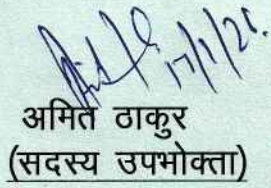 17/1/26.
अमित ठाकुर
(सदस्य उपभोक्ता)